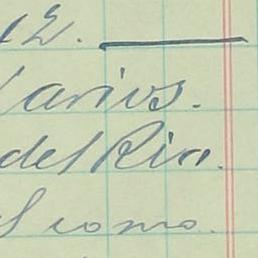 12. ———
Varios.
del Rio.